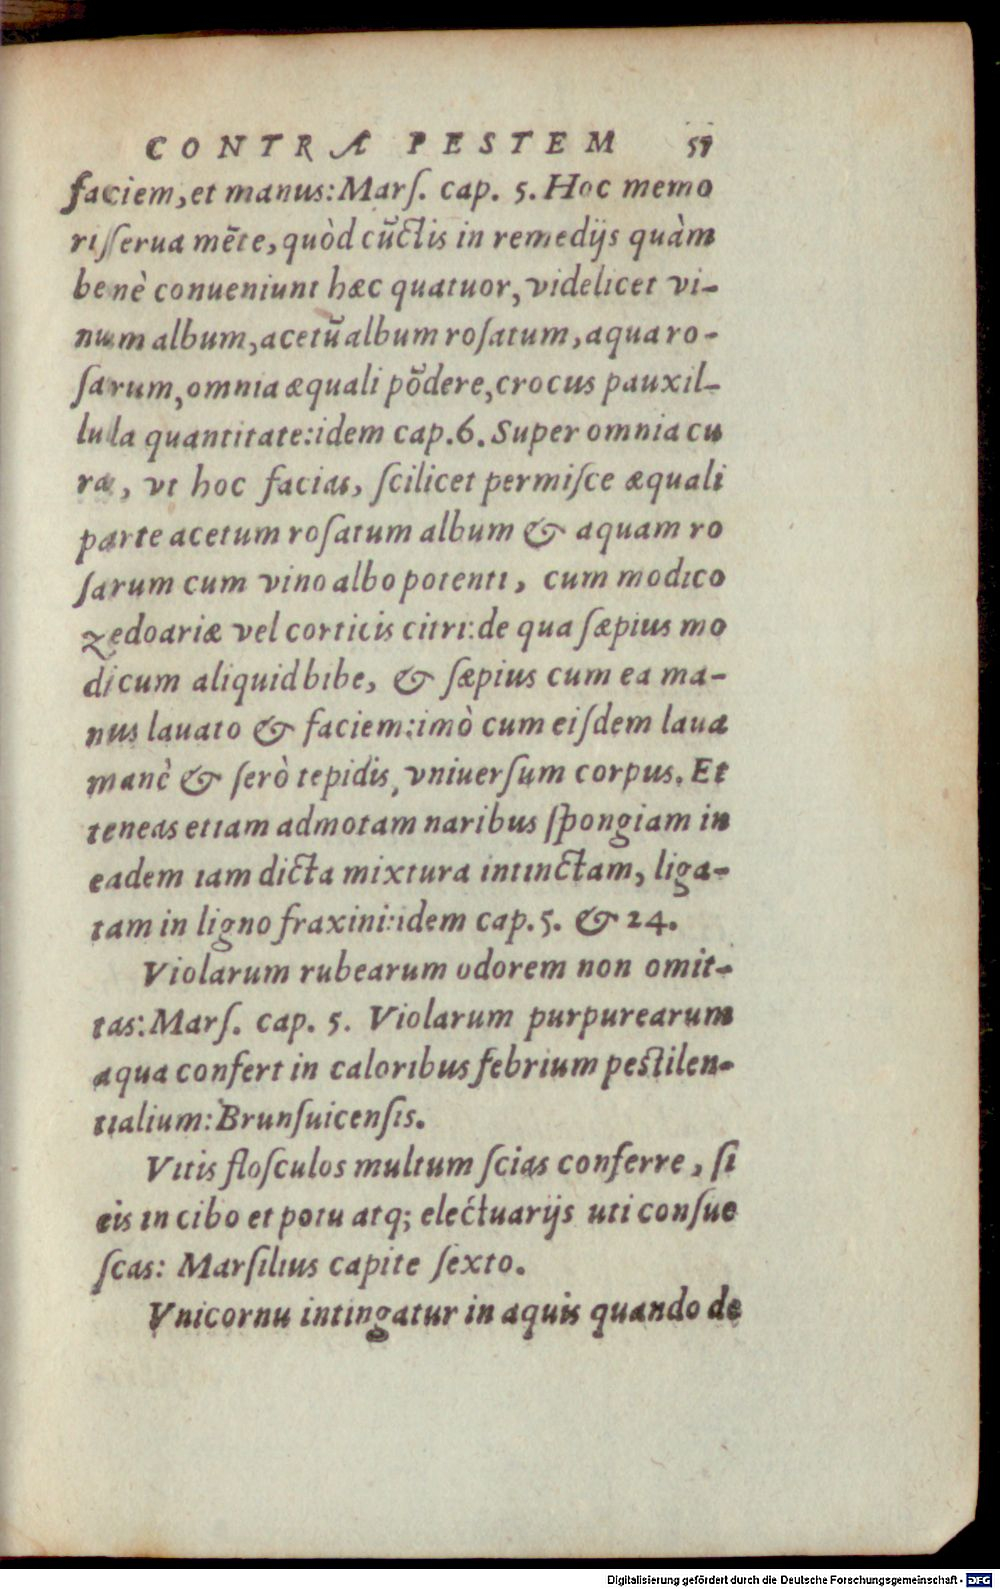 CONTRA PESTEM 57
faciem, et manus: Marſ. cap. 5. Hoc memo
ri ſerua mẽte, quòd cũctis in remedijs quàm
benè conueniunt hæc quatuor, videlicet vi-
num album, acetũ album roſatum, aqua ro-
ſarum, omnia æquali põdere, crocus pauxil-
lula quantitate: idem cap. 6. Super omnia cu
ra, vt hoc facias, ſcilicet permiſce æquali
parte acetum roſatum album & aquam ro
ſarum cum vino albo potenti, cum modico
zedoariæ vel corticis citri: de qua ſæpius mo
dicum aliquid bibe, & ſæpius cum ea ma-
nus lauato & faciem: imò cum eiſdem laua
manè & ſerò tepidis, vniuerſum corpus. Et
teneas etiam admotam naribus ſpongiam in
eadem iam dicta mixtura intinctam, liga-
tam in ligno fraxini: idem cap. 5. & 24.
Violarum rubearum odorem non omit-
tas: Marſ. cap. 5. Violarum purpurearum
aqua confert in caloribus febrium peſtilen-
tialium: Brunſuicenſis.
Vitis floſculos multum ſcias conferre, ſi
eis in cibo et potu atq; electuarijs uti conſue
ſcas: Marſilius capite ſexto.
Vnicornu intingatur in aquis quando de
Digitalisierung gefördert durch die Deutsche Forschungsgemeinschaft - DFG